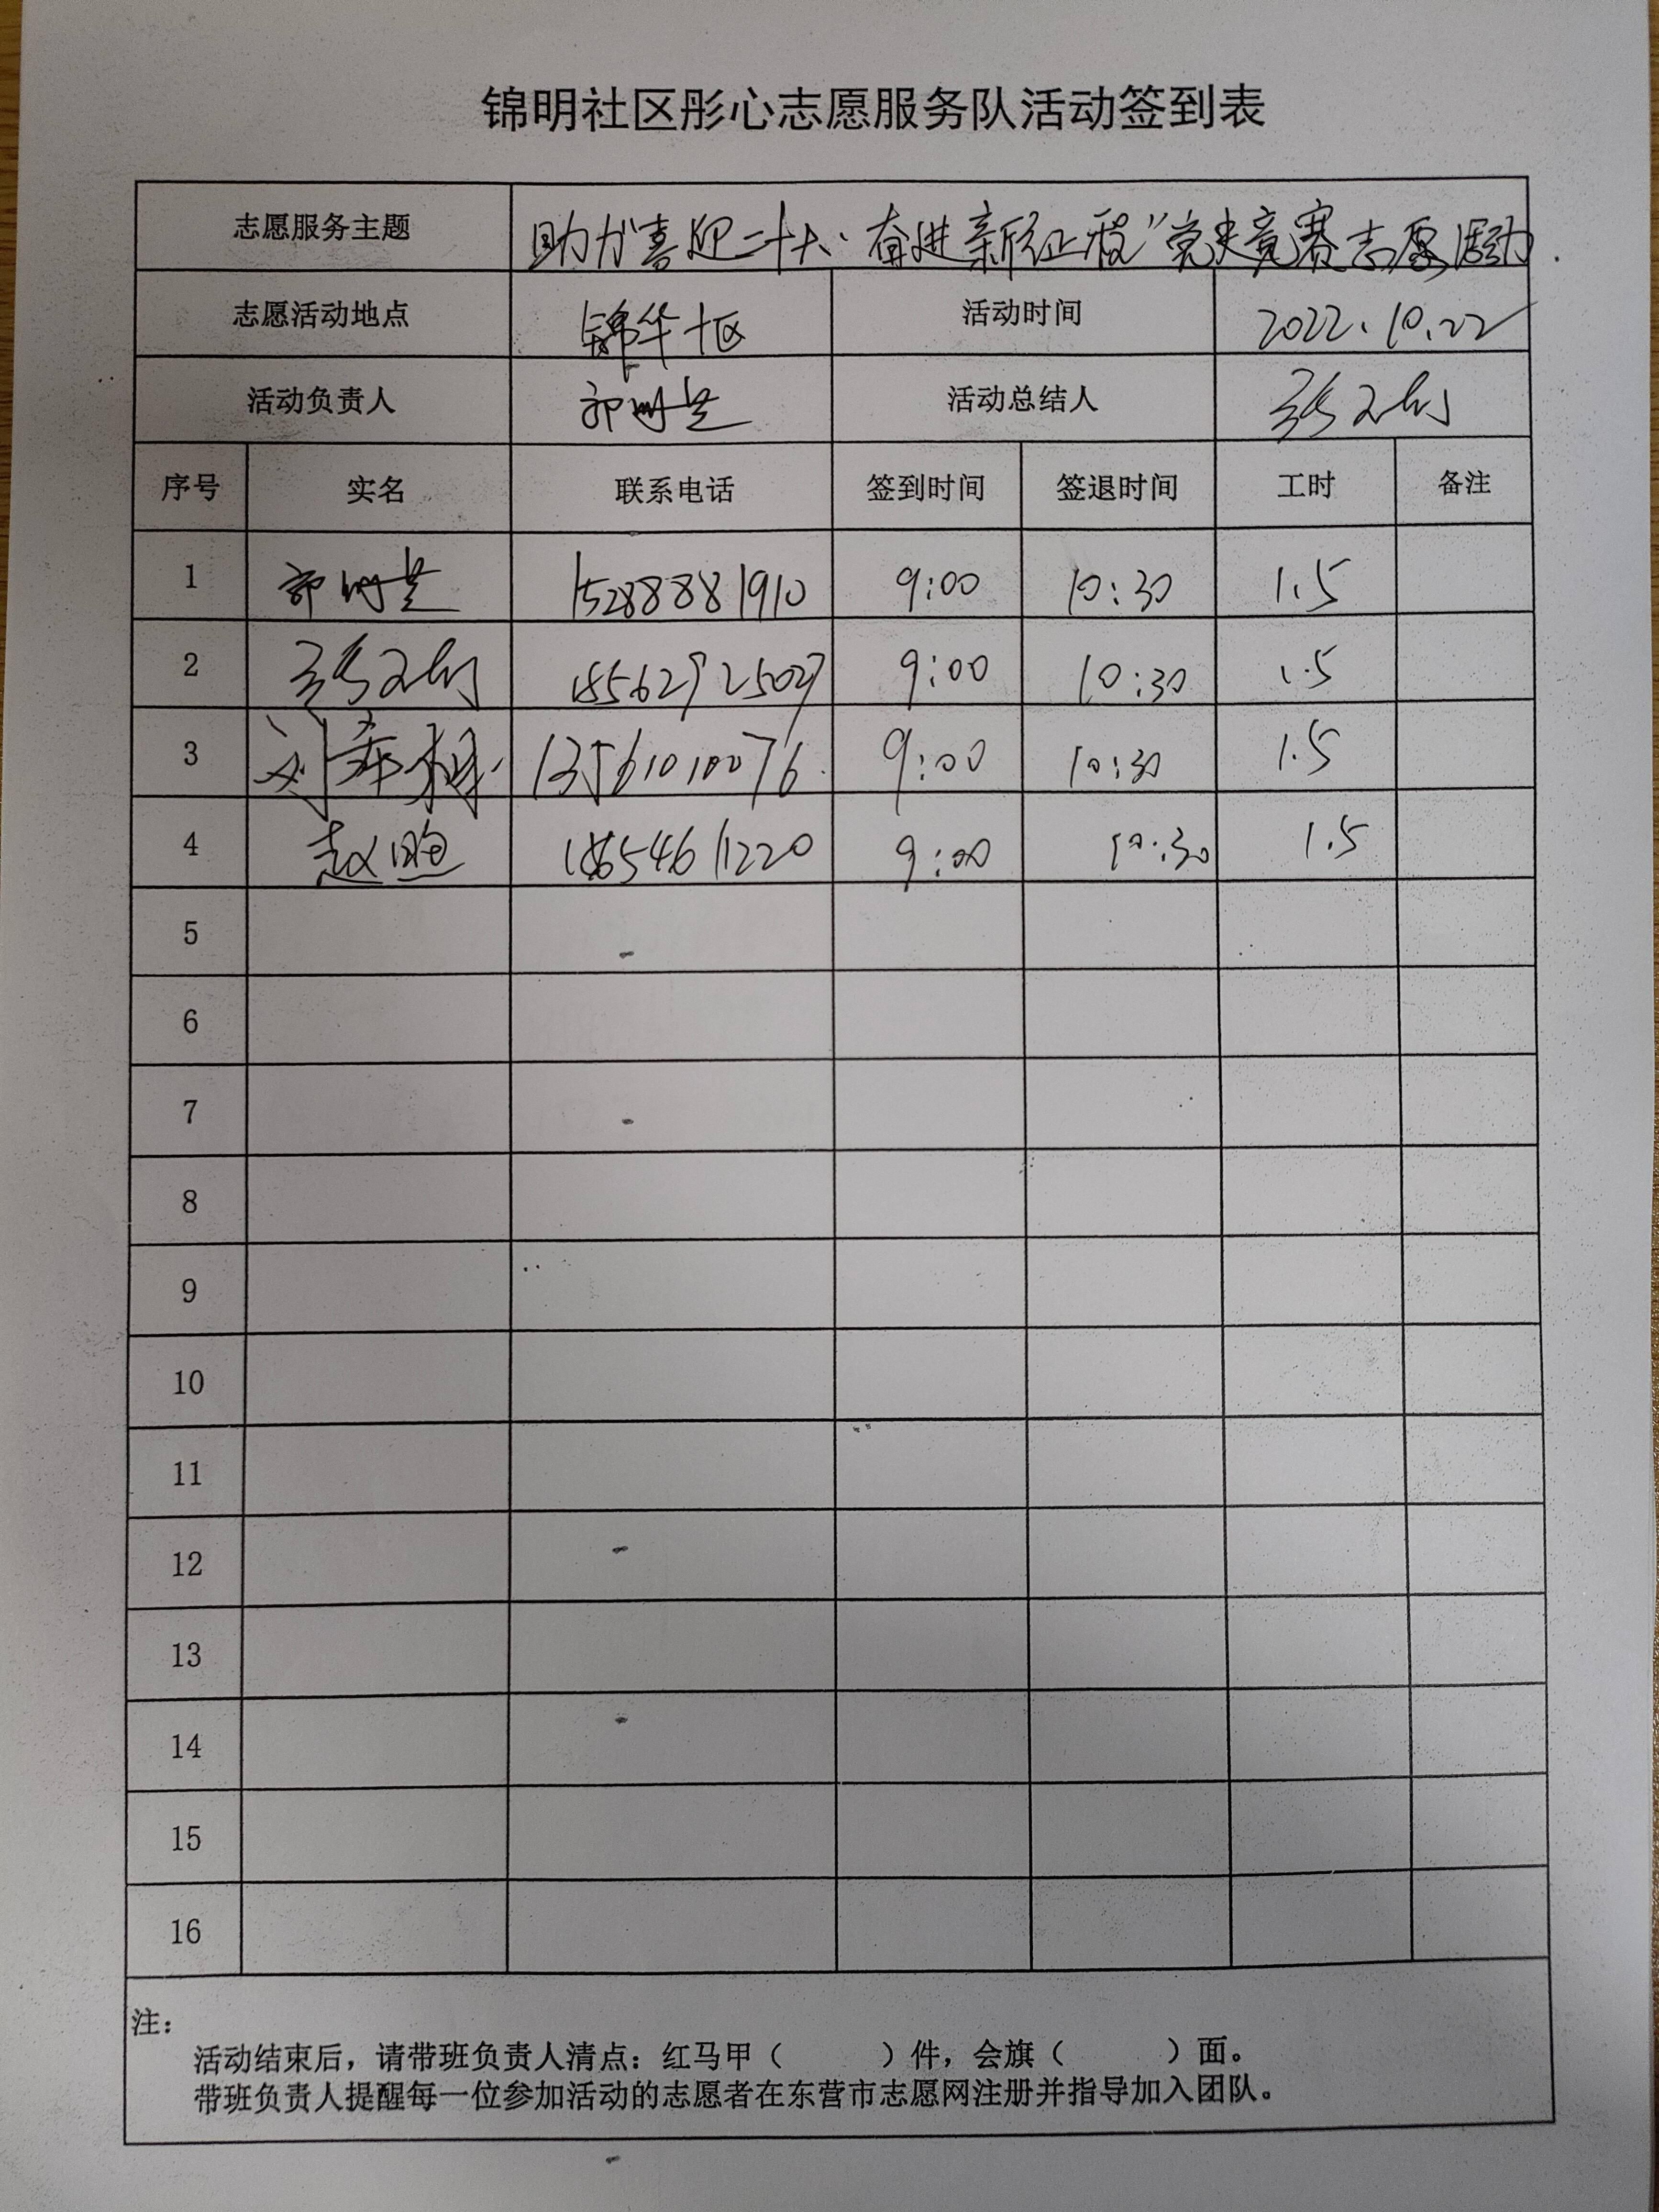 锦明社区彤心志愿服务队活动签到表
志愿服务主题 助力“喜迎二十大、奋进新征程”党史竞赛志愿活动.
志愿活动地点 锦华十区 活动时间 2022.10.22
活动负责人 活动总结人
序号 实名 联系电话 签到时间 签退时间 工时 备注
1 15288881910 9:00 10:30 1.5
2 9:00 10:30 1.5
3 13561010076 9:00 10:30 1.5
4 18654611220 9:00 10:30 1.5
5
6
7
8
9
10
11
12
13
14
15
16
注：
活动结束后，请带班负责人清点：红马甲（ ）件，会旗（ ）面。
带班负责人提醒每一位参加活动的志愿者在东营市志愿网注册并指导加入团队。